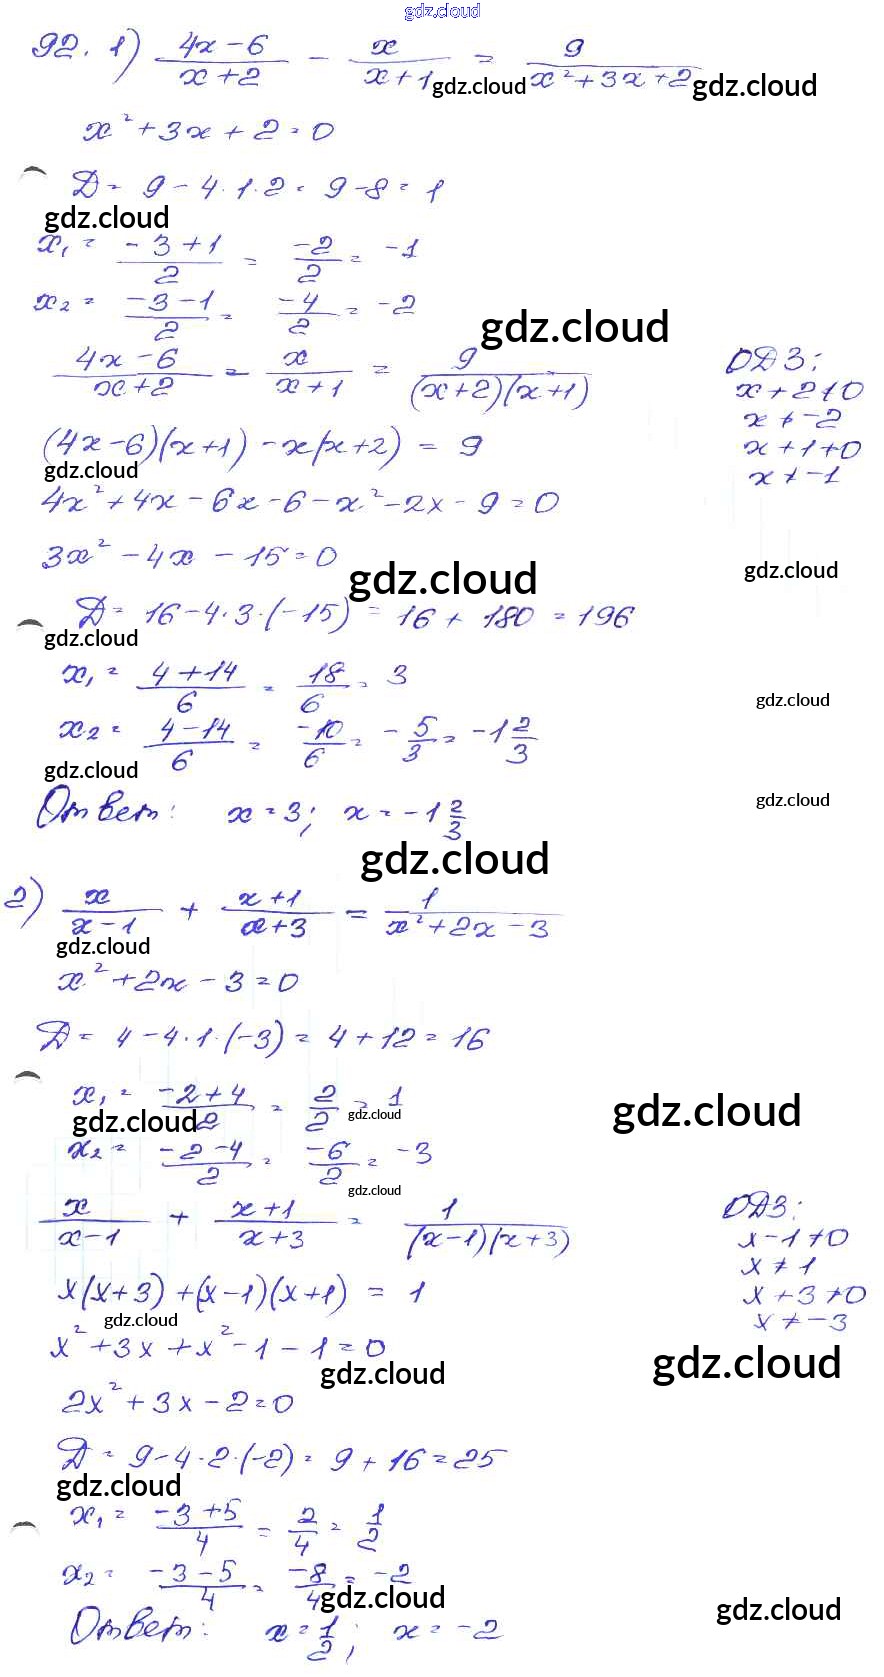 gdz.cloud
92. 1) (4x-6)/(x+2) - x/(x+1) = 9/(x²+3x+2)
gdz.cloud gdz.cloud
x²+3x+2=0
Д= 9-4·1·2= 9-8=1
gdz.cloud
x₁= (-3+1)/2 = -2/2 = -1
x₂= (-3-1)/2 = -4/2 = -2
gdz.cloud
(4x-6)/(x+2) - x/(x+1) = 9/((x+2)(x+1))
ОДЗ:
x+2≠0
x≠-2
x+1≠0
x≠-1
(4x-6)(x+1) - x(x+2) = 9
gdz.cloud
4x²+4x-6x-6-x²-2x-9=0
3x²-4x-15=0
gdz.cloud
gdz.cloud
Д= 16-4·3·(-15) = 16+180=196
gdz.cloud
x₁= (4+14)/6 = 18/6 = 3
gdz.cloud
x₂= (4-14)/6 = -10/6 = -5/3 = -1 2/3
gdz.cloud
Ответ: x=3; x=-1 2/3
gdz.cloud
gdz.cloud
2) x/(x-1) + (x+1)/(x+3) = 1/(x²+2x-3)
gdz.cloud
x²+2x-3=0
Д= 4-4·1·(-3)= 4+12=16
x₁= (-2+4)/2 = 2/2 = 1
gdz.cloud gdz.cloud gdz.cloud
x₂= (-2-4)/2 = -6/2 = -3
gdz.cloud
x/(x-1) + (x+1)/(x+3) = 1/((x-1)(x+3))
ОДЗ:
x-1≠0
x≠1
x+3≠0
x≠-3
x(x+3)+(x-1)(x+1) = 1
gdz.cloud
x²+3x+x²-1-1=0
gdz.cloud gdz.cloud
2x²+3x-2=0
Д= 9-4·2·(-2)= 9+16=25
gdz.cloud
x₁= (-3+5)/4 = 2/4 = 1/2
x₂= (-3-5)/4 = -8/4 = -2
gdz.cloud gdz.cloud
Ответ: x=1/2; x=-2